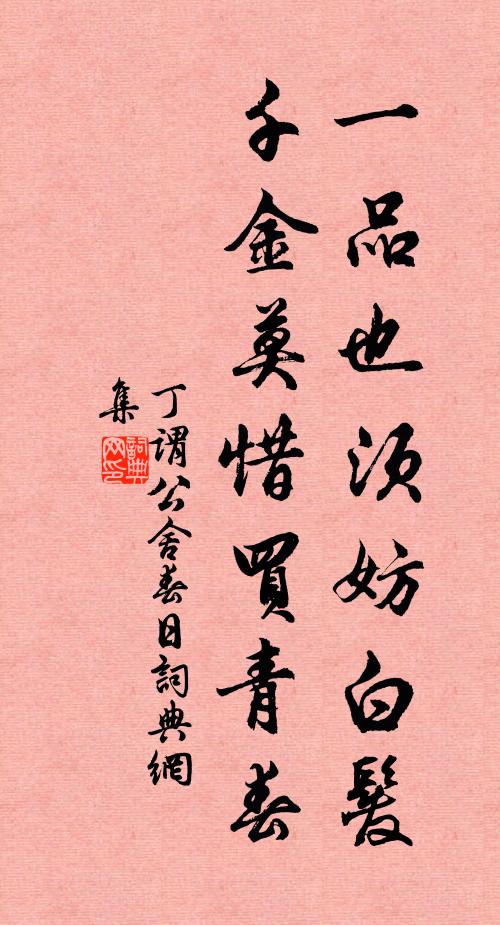 一品也須妨白髮
千金莫惜買青春
丁謂公舍春日詞典網
集
詞典網印